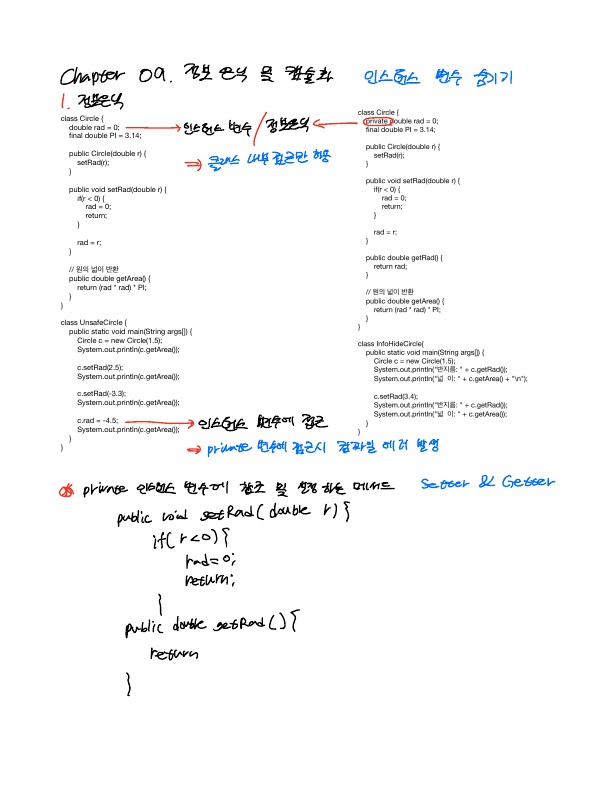 Chapter 09. 정보 은닉 및 캡슐화 인스턴스 변수 숨기기
1. 정보은닉
class Circle {
double rad = 0;
final double PI = 3.14;
public Circle(double r) {
setRad(r);
}
public void setRad(double r) {
if(r < 0) {
rad = 0;
return;
}
rad = r;
}
// 원의 넓이 반환
public double getArea() {
return (rad * rad) * PI;
}
}
class UnsafeCircle {
public static void main(String args[]) {
Circle c = new Circle(1.5);
System.out.println(c.getArea());
c.setRad(2.5);
System.out.println(c.getArea());
c.setRad(-3.3);
System.out.println(c.getArea());
c.rad = -4.5;
System.out.println(c.getArea());
}
}
인스턴스 변수 / 정보은닉
⇒ 클래스 내부 접근만 허용
인스턴스 변수에 접근
→ private 변수에 접근시 컴파일 에러 발생
class Circle {
private double rad = 0;
final double PI = 3.14;
public Circle(double r) {
setRad(r);
}
public void setRad(double r) {
if(r < 0) {
rad = 0;
return;
}
rad = r;
}
public double getRad() {
return rad;
}
// 원의 넓이 반환
public double getArea() {
return (rad * rad) * PI;
}
}
class InfoHideCircle{
public static void main(String args[]) {
Circle c = new Circle(1.5);
System.out.println("반지름: " + c.getRad());
System.out.println("넓 이: " + c.getArea() + "\n");
c.setRad(3.4);
System.out.println("반지름: " + c.getRad());
System.out.println("넓 이: " + c.getArea());
}
}
private 인스턴스 변수에 참조 및 설정 하는 메서드 Setter & Getter
public void setRad(double r){
if(r<0){
rad=0;
return;
}
public double getRad(){
return
}